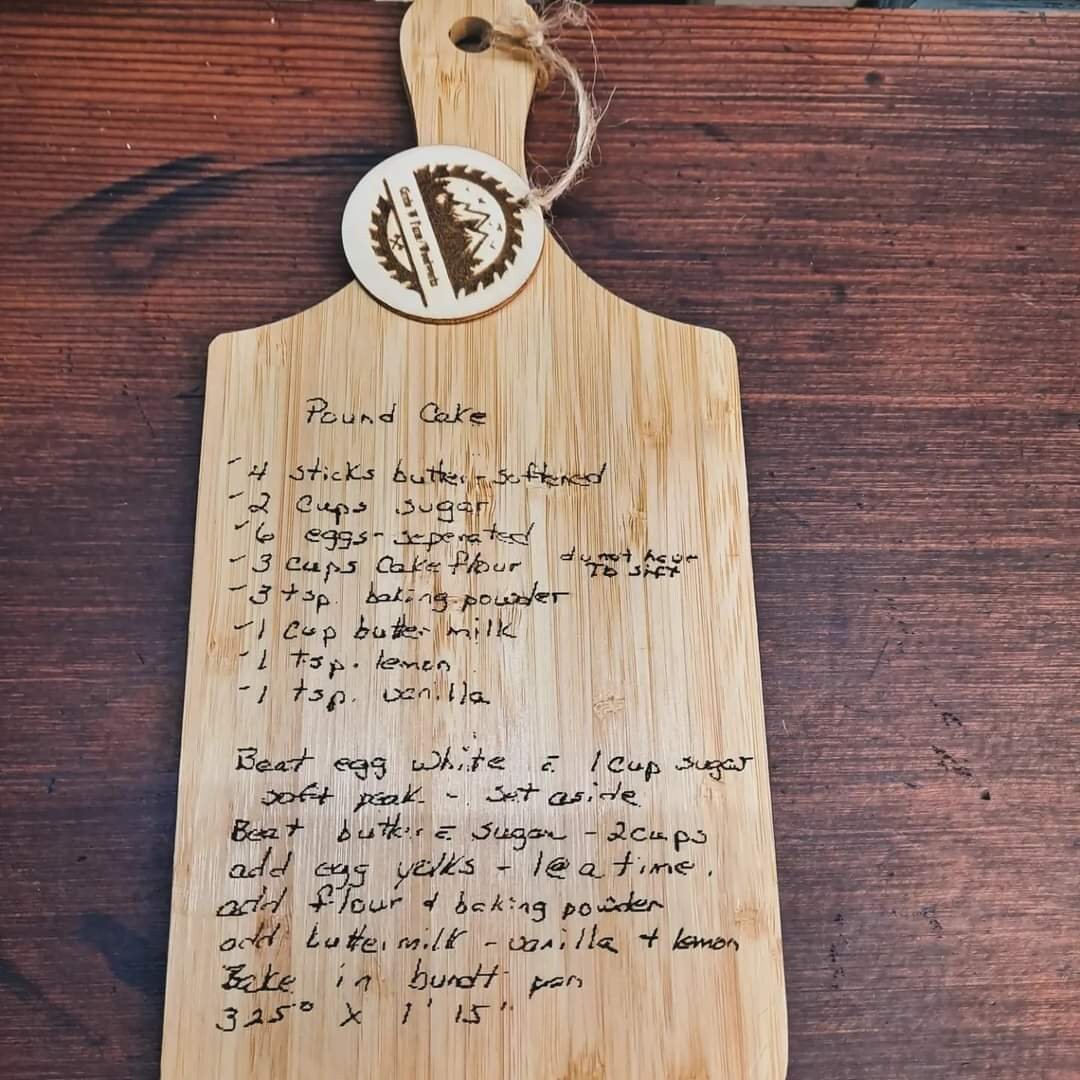 Pound Cake
- 4 sticks butter - softened
- 2 cups sugar
- 6 eggs - seperated
- 3 cups cake flour do not have
to sift
- 3 tsp. baking powder
- 1 cup butter milk
- 1 tsp. lemon
- 1 tsp. vanilla
Beat egg white c̄ 1 cup sugar
soft peak - set aside
Beat butter c̄ sugar - 2 cups
add egg yolks - 1 @ a time.
add flour & baking powder
add buttermilk - vanilla + lemon
Bake in bundt pan
325° X 1' 15"